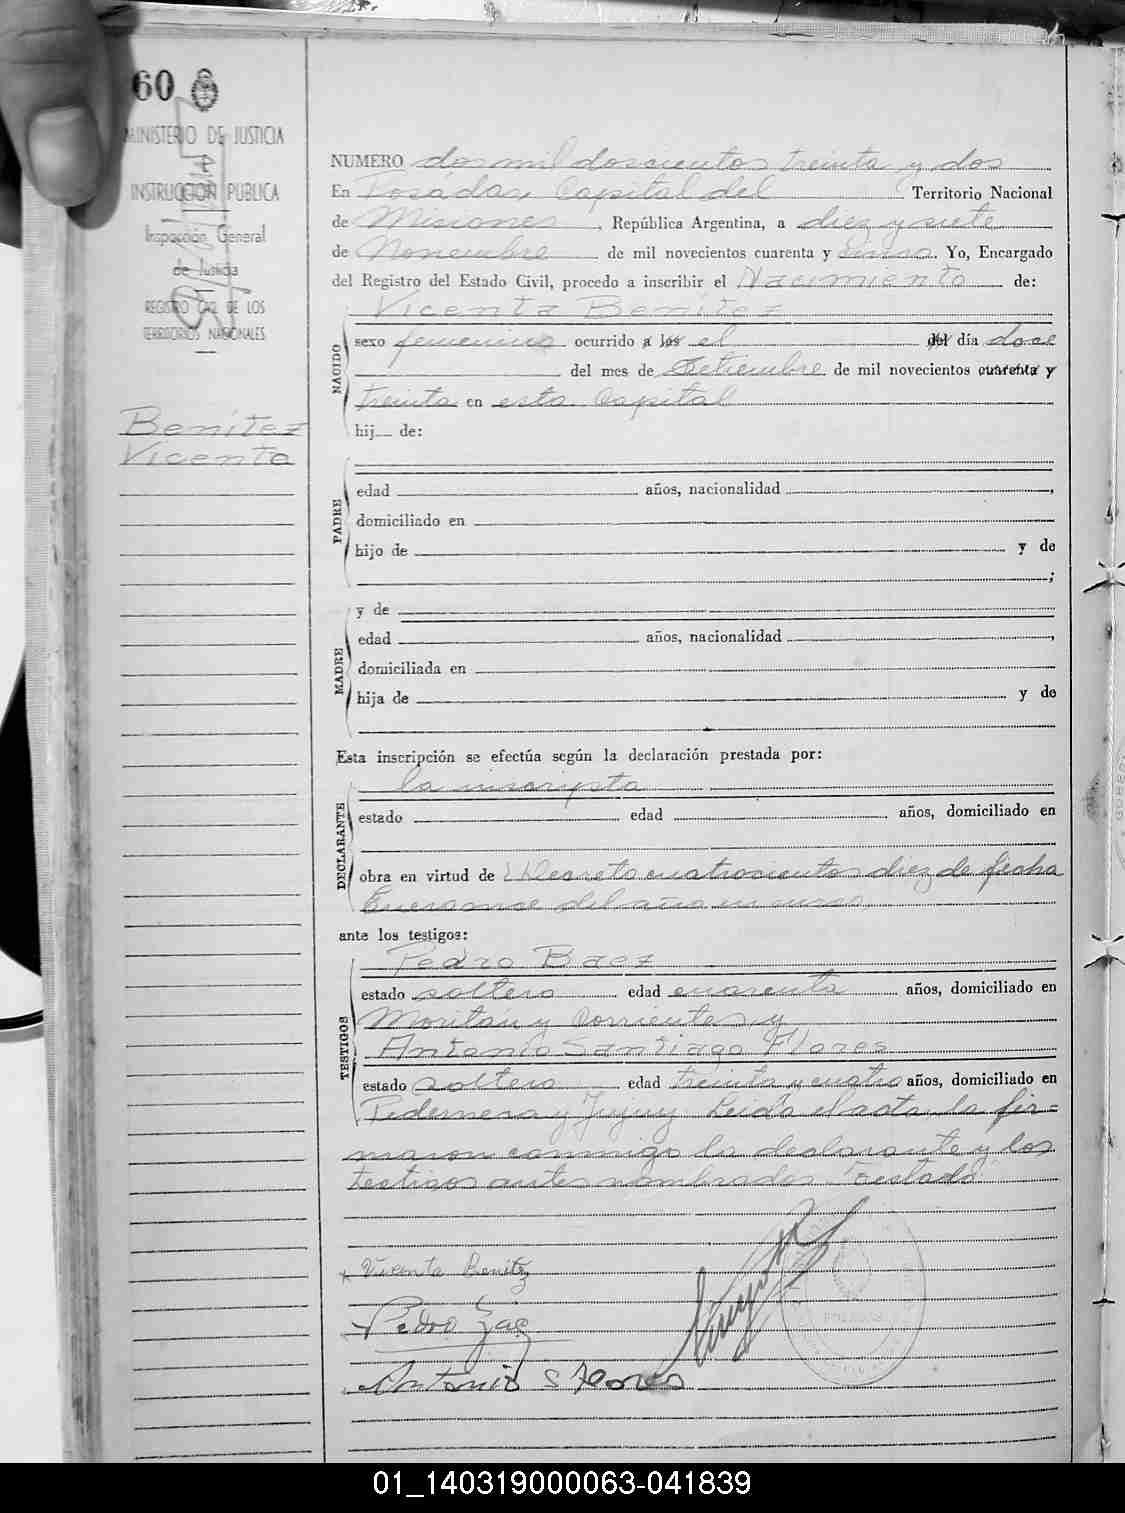 60
MINISTERIO DE JUSTICIA
E
INSTRUCCIÓN PUBLICA
Inspección General
de Justicia
REGISTRO CIVIL DE LOS
TERRITORIOS NACIONALES
Benítez
Vicenta
NUMERO dos mil doscientos treinta y dos
En Posadas, Capital del Territorio Nacional
de Misiones, República Argentina, a diez y siete
de Noviembre de mil novecientos cuarenta y cinco. Yo, Encargado
del Registro del Estado Civil, procedo a inscribir el Nacimiento de:
Vicenta Benítez
NACIDO
sexo femenino ocurrido a las el del día doce
del mes de Setiembre de mil novecientos cuarenta y
treinta en esta Capital
hij de:
PADRE
edad años, nacionalidad ,
domiciliado en
hijo de y de
;
MADRE
y de
edad años, nacionalidad ,
domiciliada en
hija de y de
Esta inscripción se efectúa según la declaración prestada por:
la inscripta
DECLARANTE
estado edad años, domiciliado en
obra en virtud de Decreto cuatrocientos diez de fecha
Enero once del año en curso,
ante los testigos:
Pedro Baez
TESTIGOS
estado soltero edad cuarenta años, domiciliado en
Moritán y Corrientes, y
Antonio Santiago Flores
estado soltero edad treinta y cuatro años, domiciliado en
Pedernera y Jujuy Leída el acta, la fir-
maron conmigo la declarante y los
testigos antes nombrados Testado
Vicenta Benítez
Pedro Baez
Antonio S Flores
01_140319000063-041839